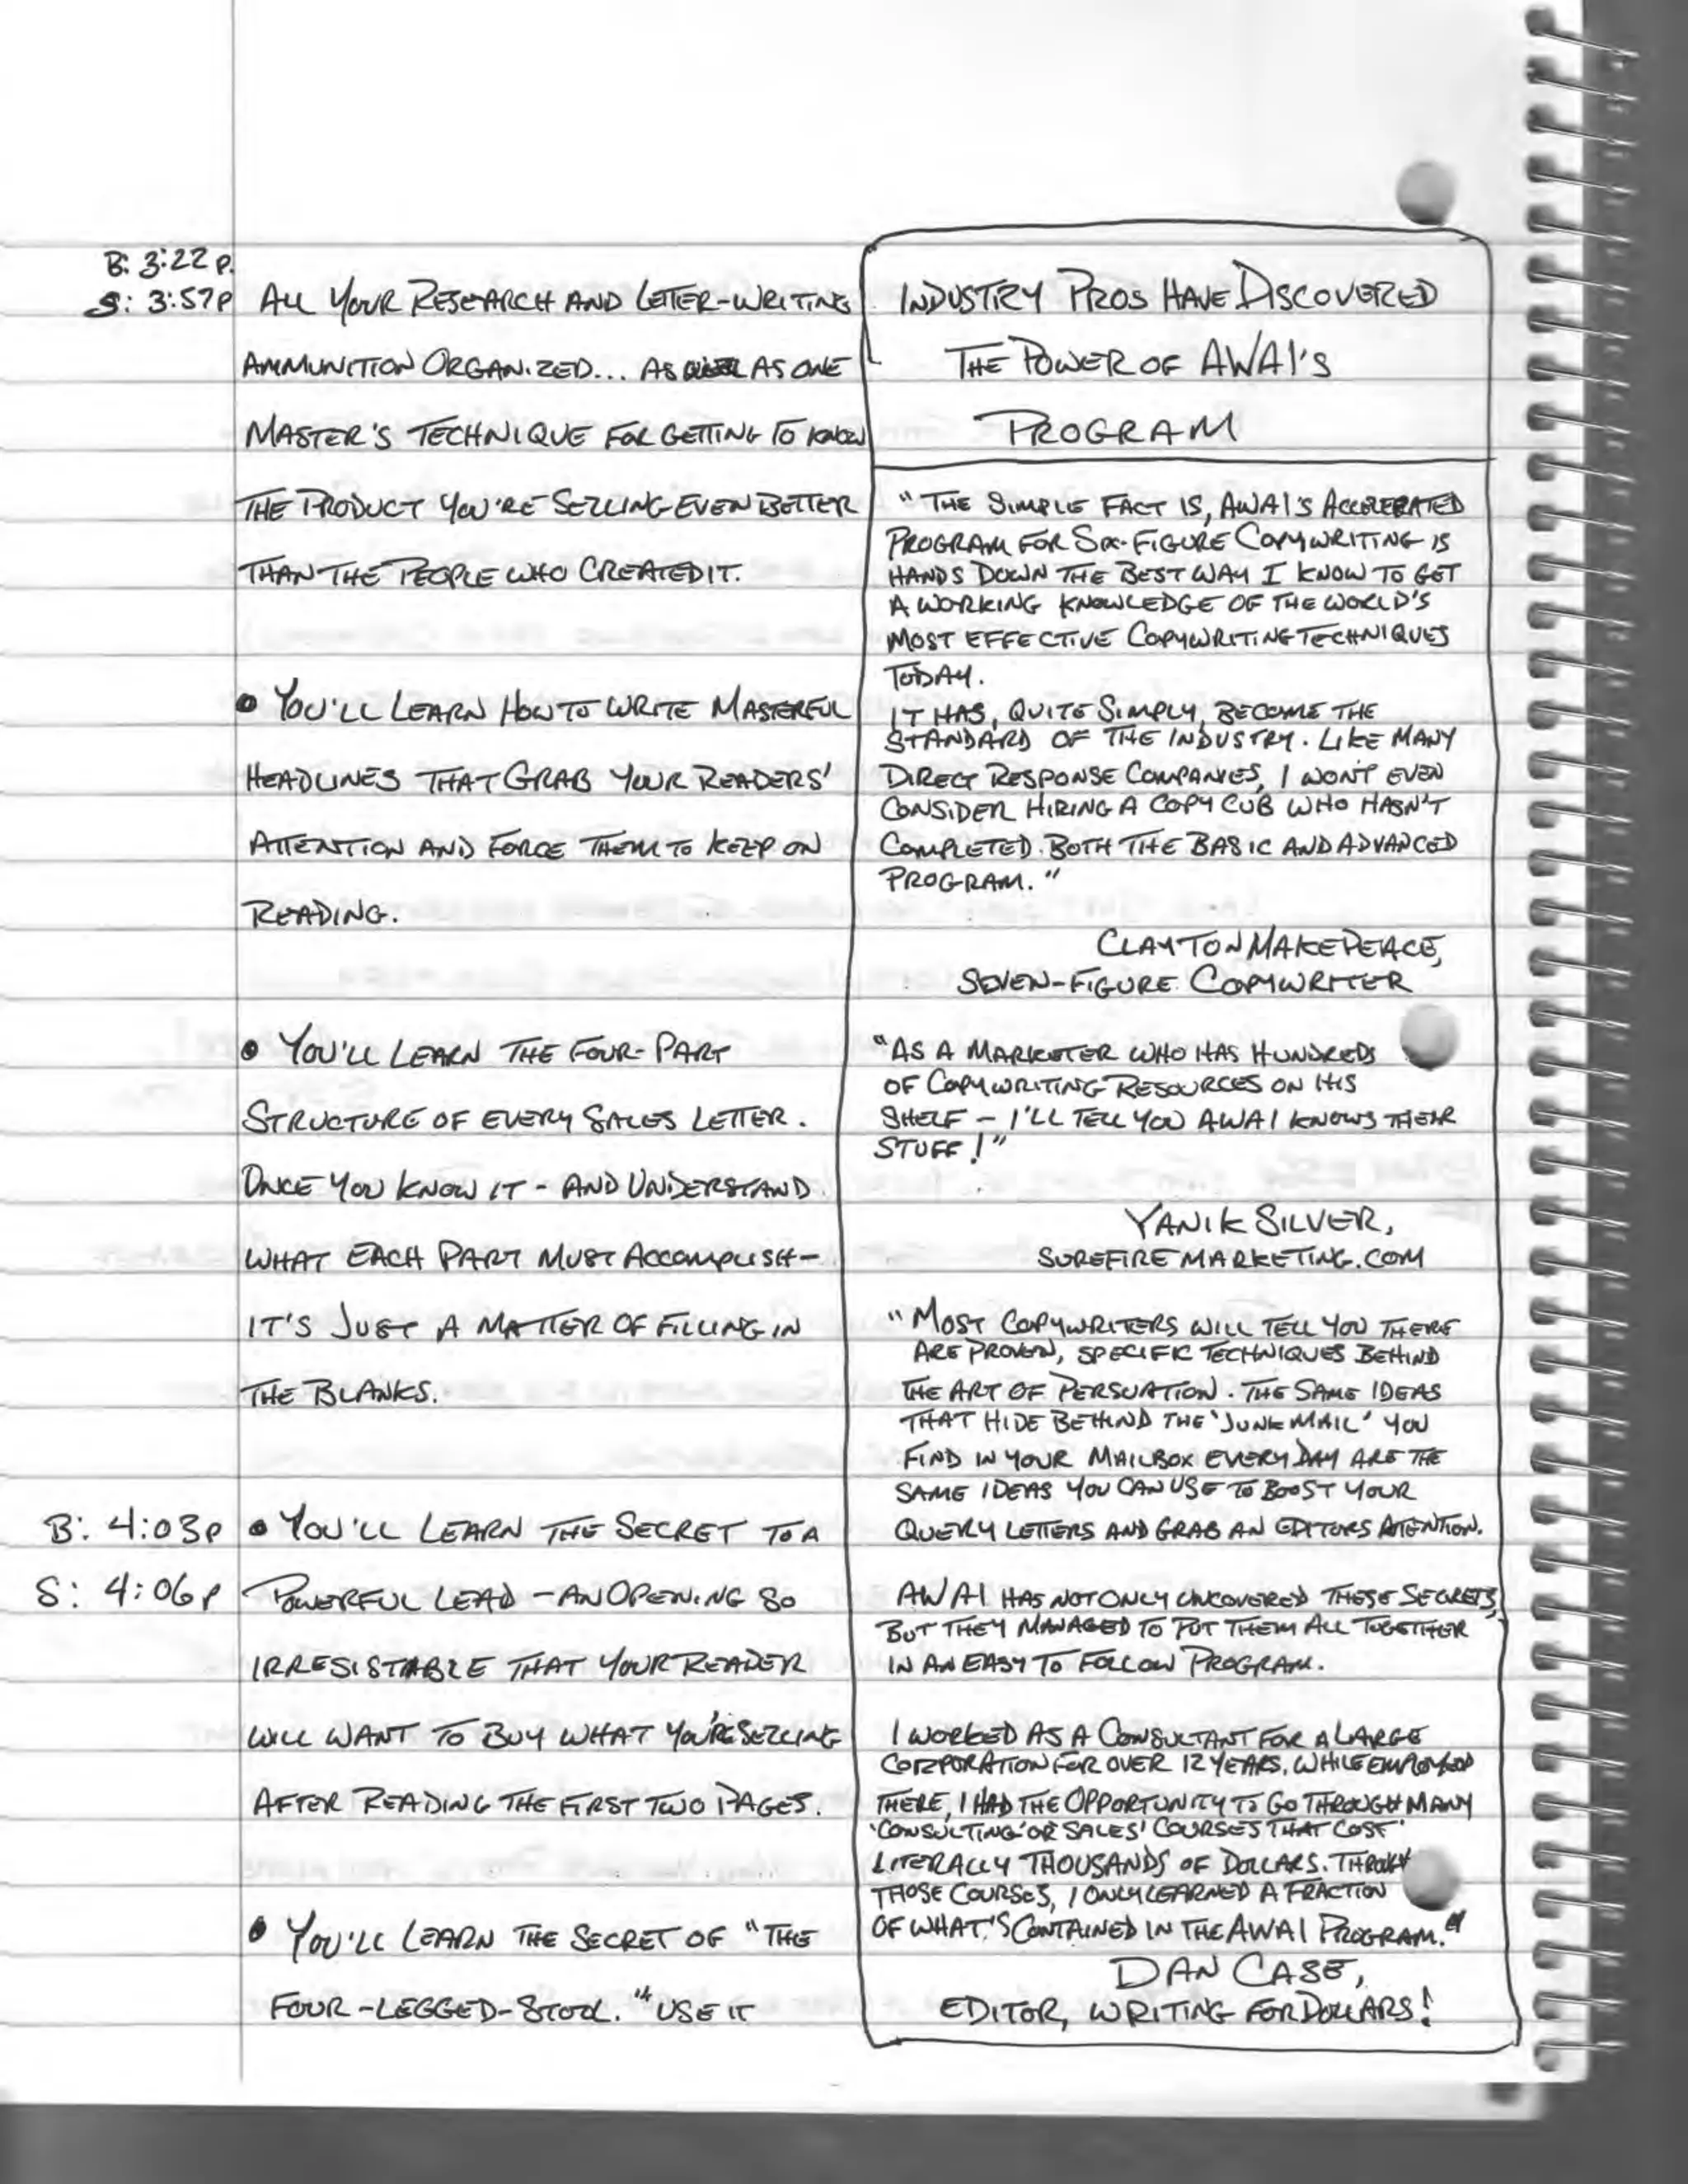 B: 3:22 P.
S: 3:57P
ALL YOUR RESEARCH AND LETTER-WRITING
AMMUNITION ORGANIZED... AS WELL AS ONE
MASTER'S TECHNIQUE FOR GETTING TO KNOW
THE PRODUCT YOU'RE SELLING EVEN BETTER
THAN THE PEOPLE WHO CREATED IT.
• YOU'LL LEARN HOW TO WRITE MASTERFUL
HEADLINES THAT GRAB YOUR READERS'
ATTENTION AND FORCE THEM TO KEEP ON
READING.
• YOU'LL LEARN THE FOUR-PART
STRUCTURE OF EVERY SALES LETTER.
ONCE YOU KNOW IT - AND UNDERSTAND
WHAT EACH PART MUST ACCOMPLISH -
IT'S JUST A MATTER OF FILLING IN
THE BLANKS.
B: 4:03P
S: 4:06P
• YOU'LL LEARN THE SECRET TO A
POWERFUL LEAD - AN OPENING SO
IRRESISTABLE THAT YOUR READER
WILL WANT TO BUY WHAT YOU'RE SELLING
AFTER READING THE FIRST TWO PAGES.
• YOU'LL LEARN THE SECRET OF "THE
FOUR-LEGGED-STOOL." USE IT
INDUSTRY PROS HAVE DISCOVERED
THE POWER OF AWAI'S
PROGRAM
"THE SIMPLE FACT IS, AWAI'S ACCELERATED
PROGRAM FOR SIX-FIGURE COPYWRITING IS
HANDS DOWN THE BEST WAY I KNOW TO GET
A WORKING KNOWLEDGE OF THE WORLD'S
MOST EFFECTIVE COPYWRITING TECHNIQUES
TODAY.
IT HAS, QUITE SIMPLY, BECOME THE
STANDARD OF THE INDUSTRY. LIKE MANY
DIRECT RESPONSE COMPANIES, I WON'T EVEN
CONSIDER HIRING A COPY CUB WHO HASN'T
COMPLETED BOTH THE BASIC AND ADVANCED
PROGRAM."
CLAYTON MAKEPEACE,
SEVEN-FIGURE COPYWRITER
"AS A MARKETER WHO HAS HUNDREDS
OF COPYWRITING RESOURCES ON HIS
SHELF - I'LL TELL YOU AWAI KNOWS THEIR
STUFF!"
YANIK SILVER,
SUREFIREMARKETING.COM
"MOST COPYWRITERS WILL TELL YOU THERE
ARE PROVEN, SPECIFIC TECHNIQUES BEHIND
THE ART OF PERSUATION. THE SAME IDEAS
THAT HIDE BEHIND THE 'JUNK MAIL' YOU
FIND IN YOUR MAILBOX EVERY DAY ARE THE
SAME IDEAS YOU CAN USE TO BOOST YOUR
QUERY LETTERS AND GRAB AN EDITORS ATTENTION.
AWAI HAS NOT ONLY UNCOVERED THESE SECRETS,
BUT THEY MANAGED TO PUT THEM ALL TOGETHER
IN AN EASY TO FOLLOW PROGRAM.
I WORKED AS A CONSULTANT FOR A LARGE
CORPORATION FOR OVER 12 YEARS. WHILE EMPLOYED
THERE, I HAD THE OPPORTUNITY TO GO THROUGH MANY
'CONSULTING' OR 'SALES' COURSES THAT COST
LITERALLY THOUSANDS OF DOLLARS. THROUGH
THOSE COURSES, I ONLY LEARNED A FRACTION
OF WHAT'S CONTAINED IN THE AWAI PROGRAM."
DAN CASE,
EDITOR, WRITING FOR DOLLARS!